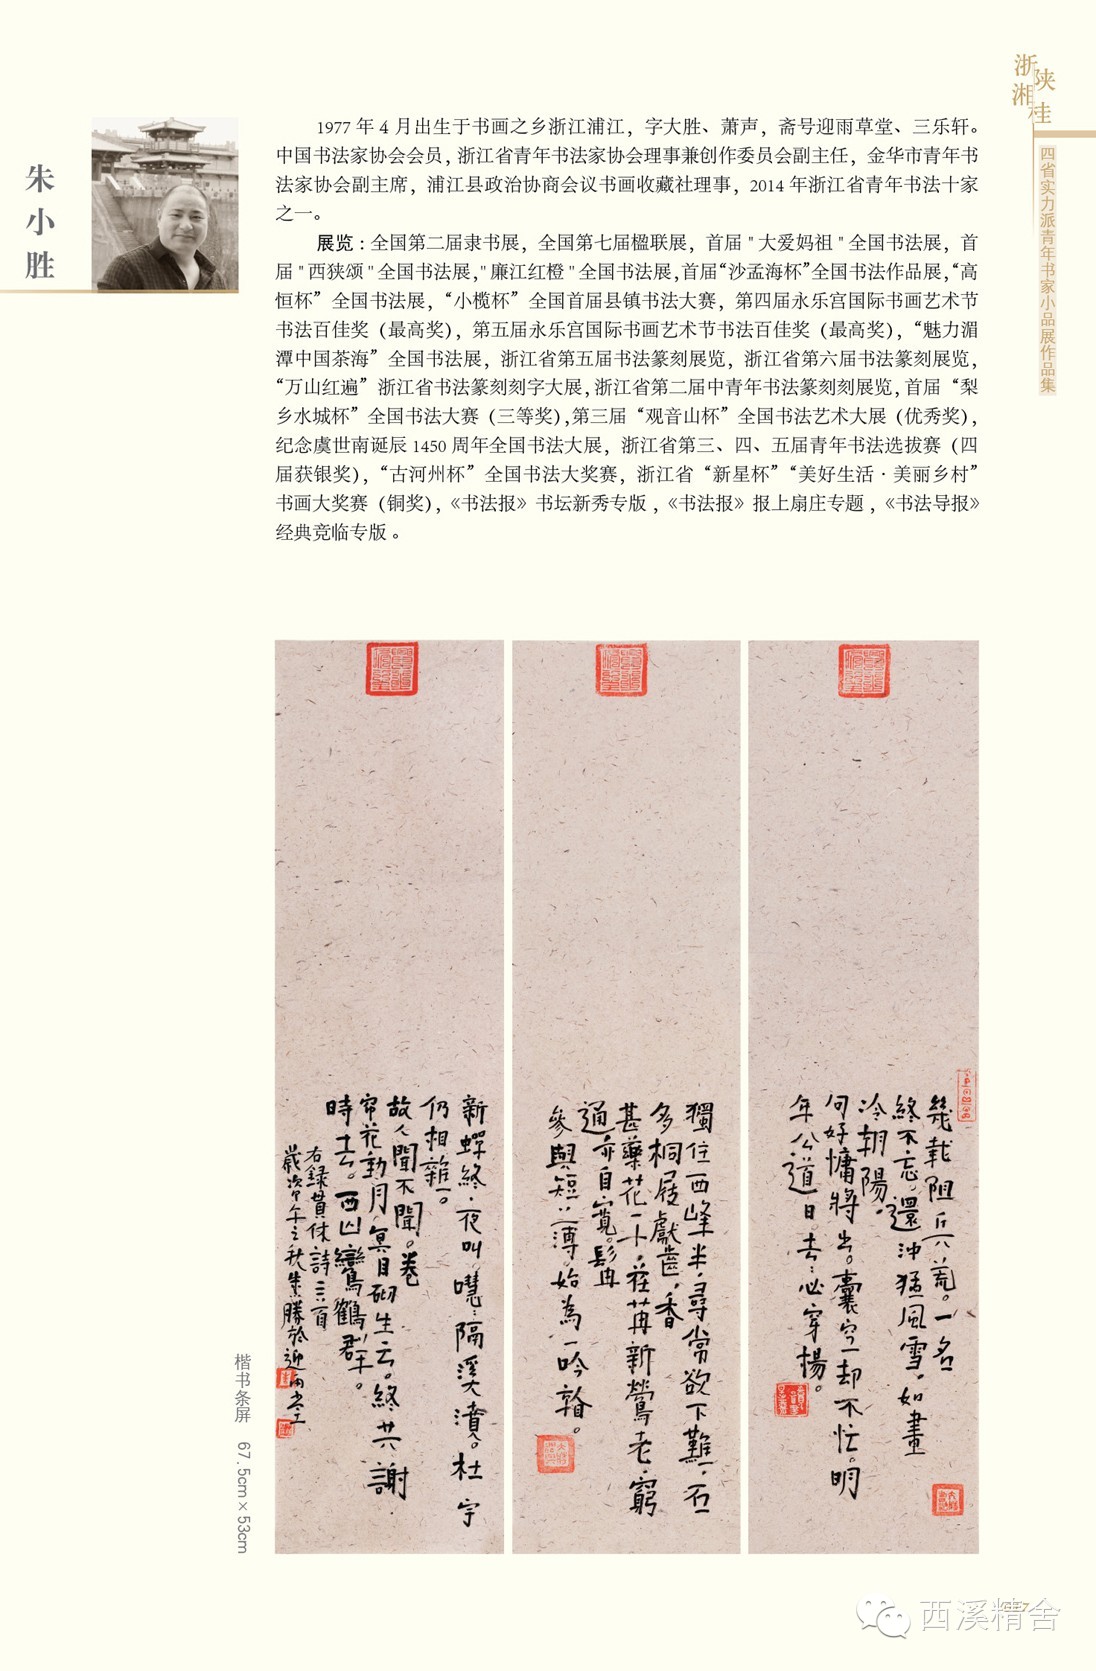 浙
陕
湘
桂
四省实力派青年书家小品展作品集
朱小胜
1977 年 4 月出生于书画之乡浙江浦江，字大胜、萧声，斋号迎雨草堂、三乐轩。
中国书法家协会会员，浙江省青年书法家协会理事兼创作委员会副主任，金华市青年书
法家协会副主席，浦江县政治协商会议书画收藏社理事，2014 年浙江省青年书法十家
之一。
展览：全国第二届隶书展，全国第七届楹联展，首届"大爱妈祖"全国书法展，首
届"西狭颂"全国书法展，"廉江红橙"全国书法展，首届“沙孟海杯”全国书法作品展，“高
恒杯”全国书法展，“小榄杯”全国首届县镇书法大赛，第四届永乐宫国际书画艺术节
书法百佳奖（最高奖），第五届永乐宫国际书画艺术节书法百佳奖（最高奖），“魅力湄
潭中国茶海”全国书法展，浙江省第五届书法篆刻展览，浙江省第六届书法篆刻展览，
“万山红遍”浙江省书法篆刻刻字大展，浙江省第二届中青年书法篆刻刻展览，首届“梨
乡水城杯”全国书法大赛（三等奖），第三届“观音山杯”全国书法艺术大展（优秀奖），
纪念虞世南诞辰 1450 周年全国书法大展，浙江省第三、四、五届青年书法选拔赛（四
届获银奖），“古河州杯”全国书法大奖赛，浙江省“新星杯”“美好生活·美丽乡村”
书画大奖赛（铜奖），《书法报》书坛新秀专版，《书法报》报上扇庄专题，《书法导报》
经典竞临专版。
幾載阻兵荒。一名
終不忘。還沖猛風雪。如畫
冷朝陽。
句好慵將出。囊空却不忙。明
年公道日。去必穿楊。
獨住西峰半。尋常欲下難。石
多桐屐齒。香
甚藥花一。荏苒新鶯老。窮
通亦自寬。髯
參與短薄。始為一吟
新蟬終夜叫。嘒隔溪濆。杜宇
仍相雜。
故人聞不聞。卷
帘花動月。冥目砌生云。終共謝
時去。西山鸞鶴群。
右錄貫休詩三首
歲次甲午之秋朱勝於迎雨
楷书条屏　67.5cm×53cm
西溪精舍